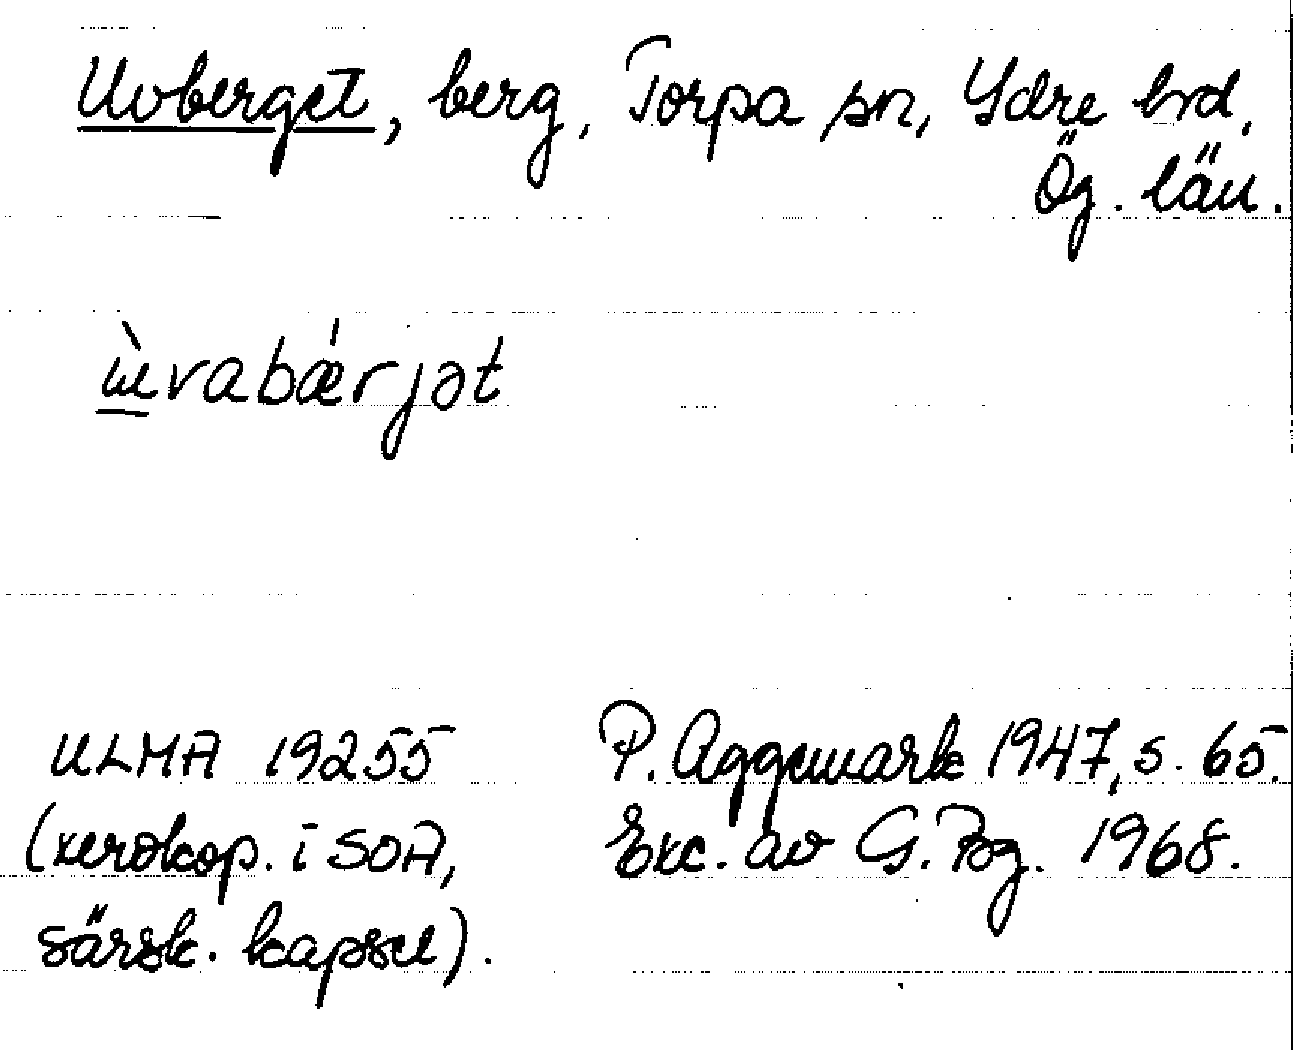 Uvberget, berg, Torpa sn, Ydre hd,
Ög. län.
ɯ̀vabǽrjət
ULMA 19255 P. Aggemark 1947, s. 65.
(xerokop. i SOA, Exc. av G. Bg. 1968.
särsk. kapsel).